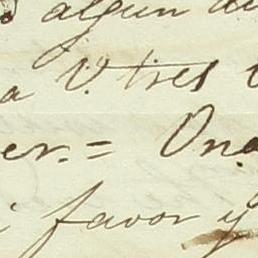 algun
a V. tres
er. = Ona
favor y